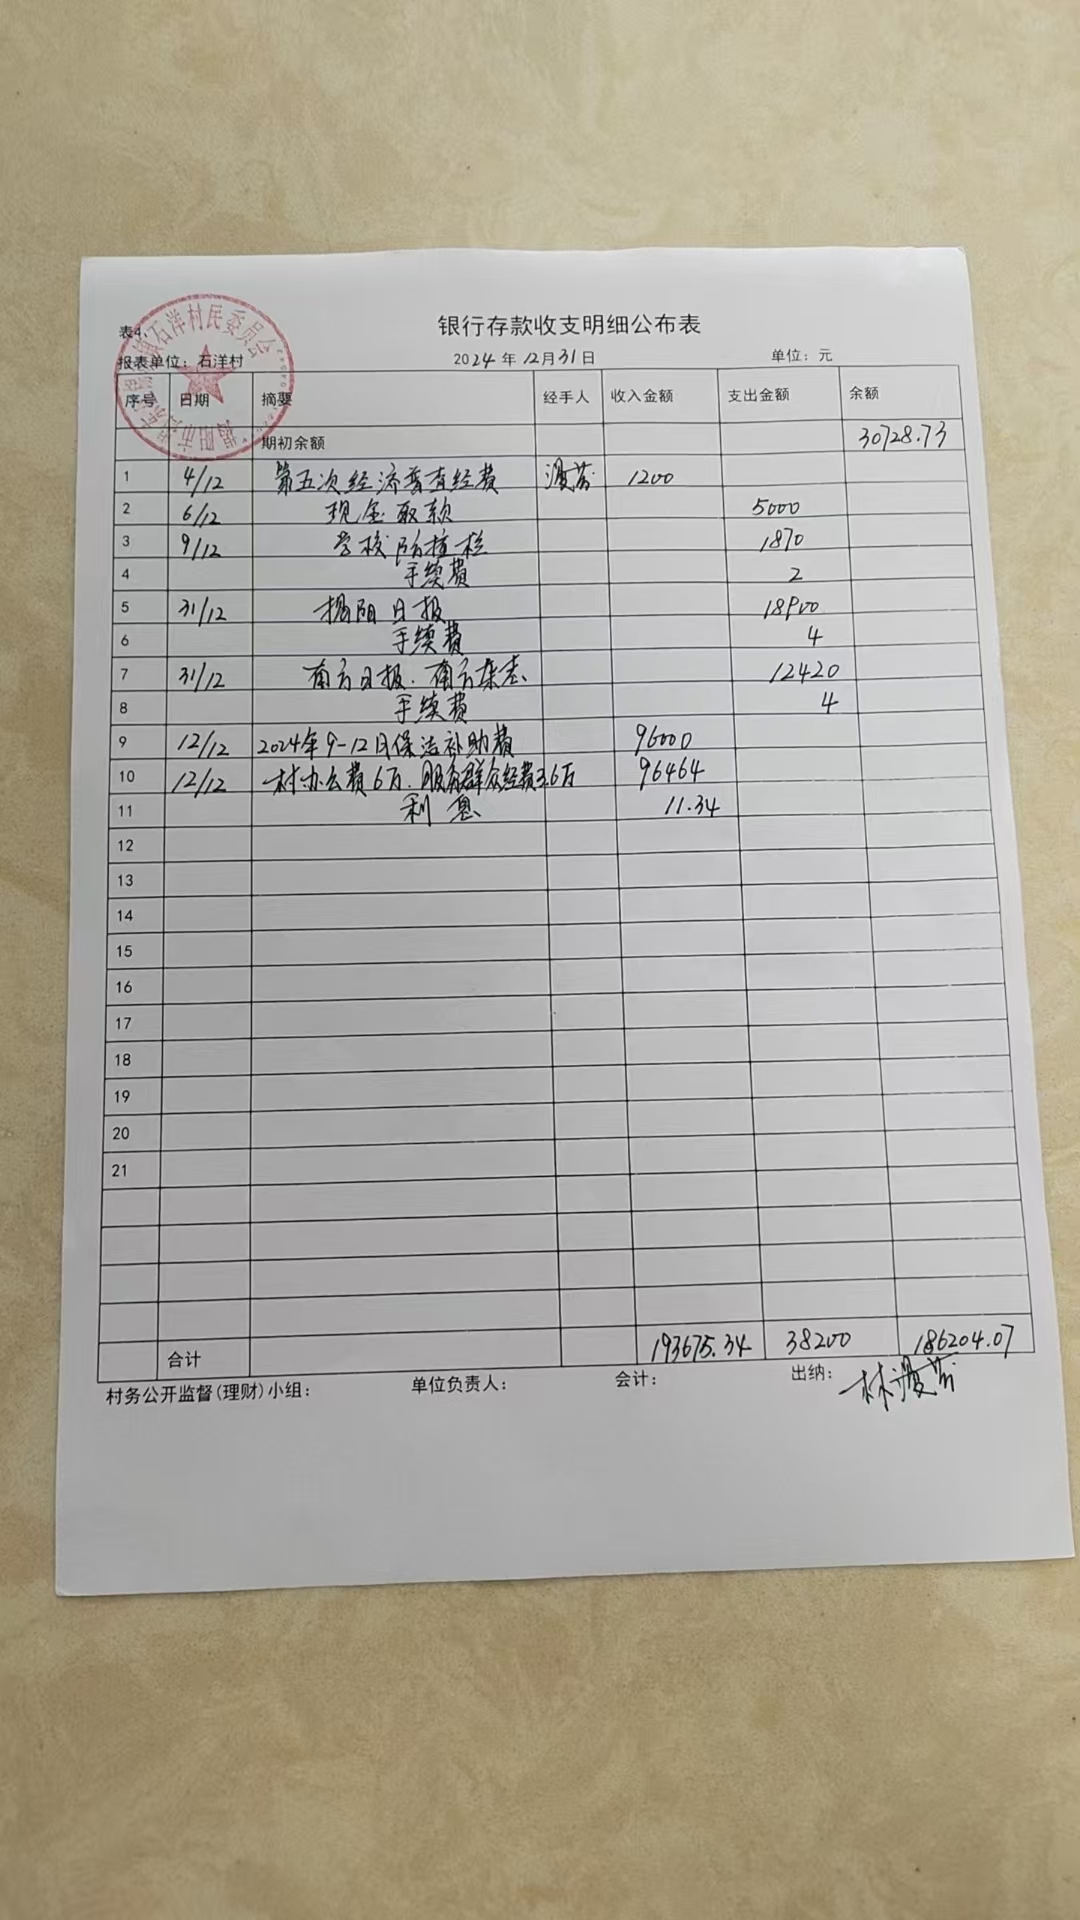 银行存款收支明细公布表
表4.
报表单位：石洋村 2024年12月31日 单位：元
序号 日期 摘要 经手人 收入金额 支出金额 余额
期初余额 30728.73
1 4/12 第五次经济普查经费 1200
2 6/12 现金取款 5000
3 9/12 学校防撞栏 1870
4 手续费 2
5 31/12 揭阳日报 18900
6 手续费 4
7 31/12 南方日报.南方杂志 12420
8 手续费 4
9 12/12 2024年9-12月保洁补助费 96000
10 12/12 村办公费6万.服务群众经费3.6万 96464
11 利息 11.34
12
13
14
15
16
17
18
19
20
21
合计 193675.34 38200 186204.07
村务公开监督(理财)小组： 单位负责人： 会计： 出纳：林
石洋村民委员会
揭阳市